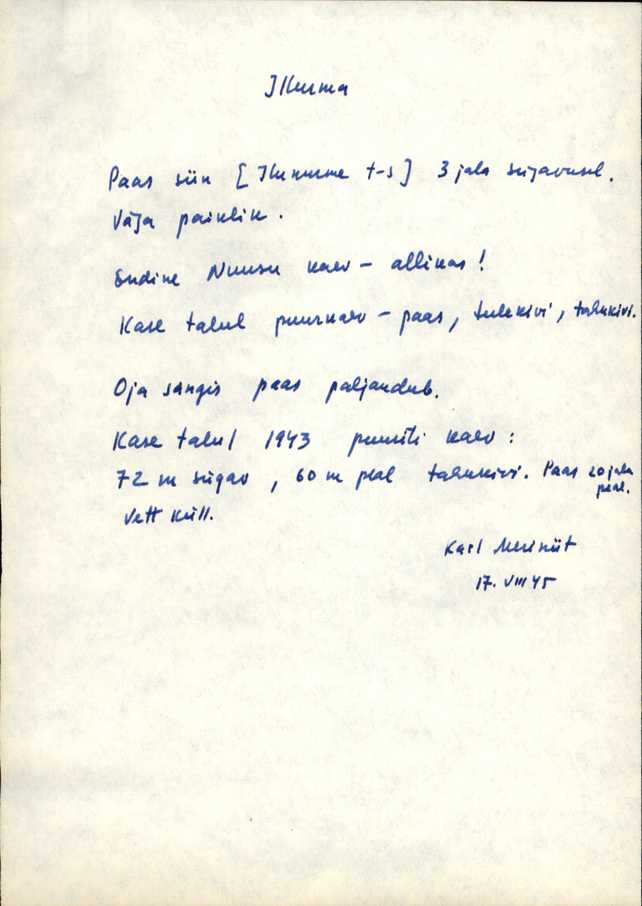 Ilkurma
Paas siin [Ilkumurme t-s] 3 jala sügavusel.
Väga paiklik.
Endine Nuusu kaev – allikas!
Kase talul puurkaev – paas, tulekivi, tahukivi.
Oja sängis paas paljandub.
Kase talul 1943 puuriti kaev:
72 m sügav, 60 m peal tahukivi. Paas 20 jala
peal.
Vett küll.
Karl
17. VIII 45